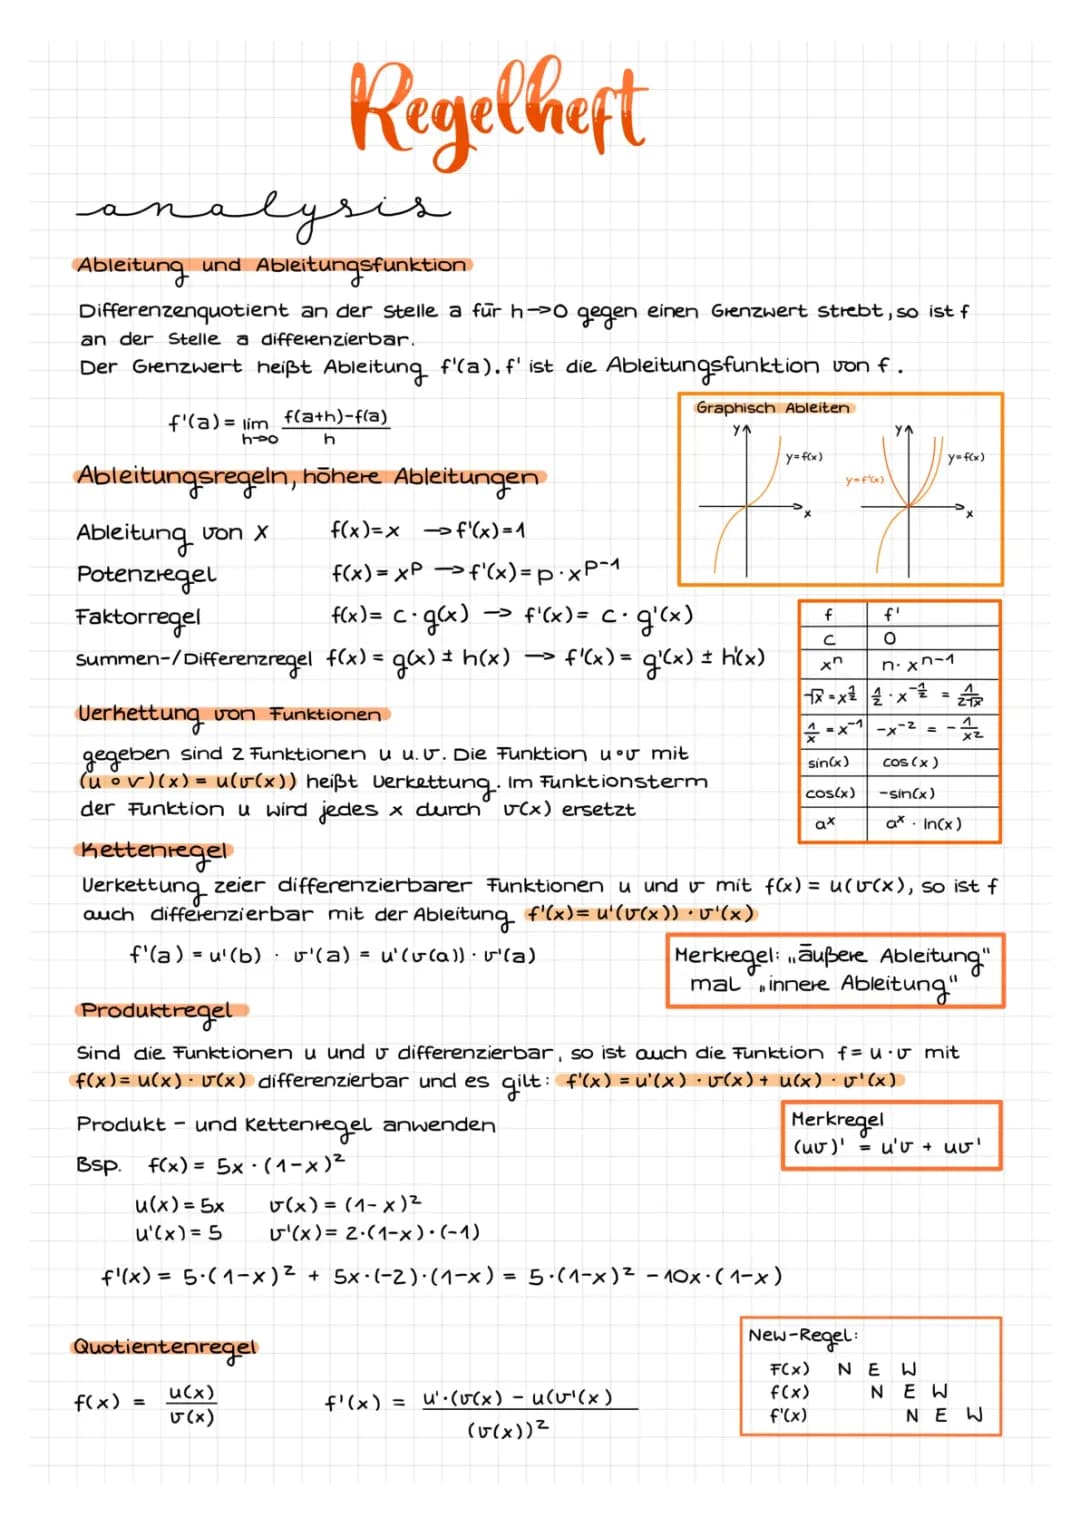 Regelheft
analysis
Ableitung und Ableitungsfunktion
Differenzenquotient an der Stelle a für h→0 gegen einen Grenzwert strebt, so ist f
an der Stelle a differenzierbar.
Der Grenzwert heißt Ableitung f'(a). f' ist die Ableitungsfunktion von f.
f'(a) = lim h→0 (f(a+h)-f(a))/h
Graphisch Ableiten
y
y=f(x)
x
y
y=f'(x)
y=f(x)
x
Ableitungsregeln, höhere Ableitungen
Ableitung von x f(x)=x → f'(x)=1
Potenzregel f(x)=x^p → f'(x)=p·x^p-1
Faktorregel f(x)=c·g(x) → f'(x)=c·g'(x)
Summen-/Differenzregel f(x)=g(x)±h(x) → f'(x)=g'(x)±h'(x)
f f'
c 0
xⁿ n·xⁿ⁻¹
√x=x^1/2 1/2·x^-1/2 = 1/(2√x)
1/x=x⁻¹ -x⁻² = -1/x²
sin(x) cos(x)
cos(x) -sin(x)
aˣ aˣ·ln(x)
Verkettung von Funktionen
gegeben sind 2 Funktionen u u.v. Die Funktion u∘v mit
(u∘v)(x) = u(v(x)) heißt Verkettung. Im Funktionsterm
der Funktion u wird jedes x durch v(x) ersetzt
Kettenregel
Verkettung zeier differenzierbarer Funktionen u und v mit f(x)=u(v(x), so ist f
auch differenzierbar mit der Ableitung f'(x)=u'(v(x))·v'(x)
f'(a) = u'(b) · v'(a) = u'(v(a))·v'(a)
Merkregel: „äußere Ableitung"
mal „innere Ableitung"
Produktregel
Sind die Funktionen u und v differenzierbar, so ist auch die Funktion f=u·v mit
f(x)=u(x)·v(x) differenzierbar und es gilt: f'(x)=u'(x)·v(x)+u(x)·v'(x)
Produkt - und Kettenregel anwenden
Merkregel
(uv)' = u'v + uv'
Bsp. f(x)= 5x·(1-x)²
u(x)=5x v(x)=(1-x)²
u'(x)=5 v'(x)=2·(1-x)·(-1)
f'(x) = 5·(1-x)² + 5x·(-2)·(1-x) = 5·(1-x)² - 10x·(1-x)
Quotientenregel
f(x) = u(x)/v(x) f'(x) = (u'·(v(x) - u(v'(x))/(v(x))²
New-Regel:
F(x) N E W
f(x) N E W
f'(x) N E W